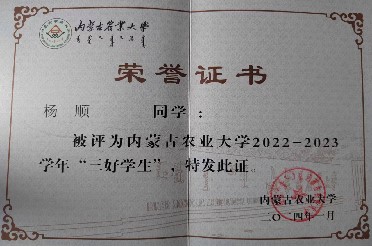 内蒙古农业大学
荣誉证书
杨 顺 同学：
被评为内蒙古农业大学2022-2023
学年“三好学生”，特发此证。
内蒙古农业大学
二〇二四年一月